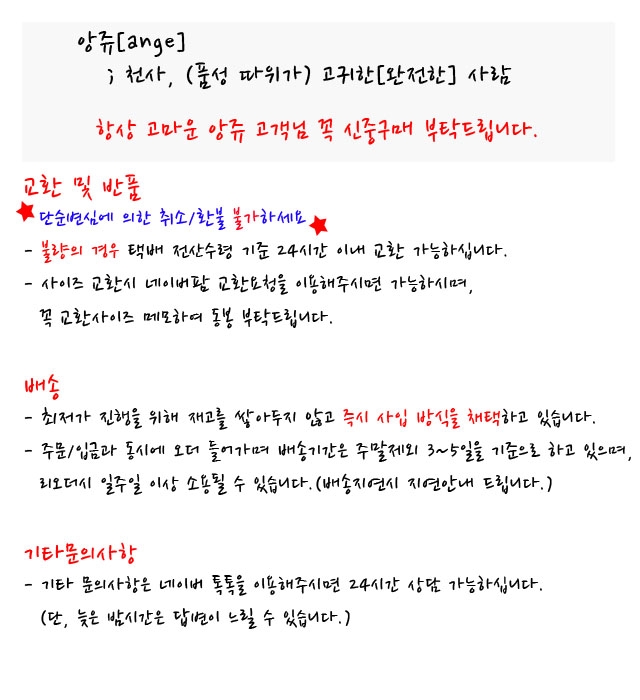 앙쥬[ange]
; 천사, (품성 따위가) 고귀한[완전한] 사람
항상 고마운 앙쥬 고객님 꼭 신중구매 부탁드립니다.
교환 및 반품
단순변심에 의한 취소/환불 불가하세요
- 불량의 경우 택배 전산수령 기준 24시간 이내 교환 가능하십니다.
- 사이즈 교환시 네이버팜 교환요청을 이용해주시면 가능하시며,
꼭 교환사이즈 메모하여 동봉 부탁드립니다.
배송
- 최저가 진행을 위해 재고를 쌓아두지 않고 즉시 사입 방식을 채택하고 있습니다.
- 주문/입금과 동시에 오더 들어가며 배송기간은 주말제외 3~5일을 기준으로 하고 있으며,
리오더시 일주일 이상 소용될 수 있습니다.(배송지연시 지연안내 드립니다.)
기타문의사항
- 기타 문의사항은 네이버 톡톡을 이용해주시면 24시간 상담 가능하십니다.
(단, 늦은 밤시간은 답변이 느릴 수 있습니다.)